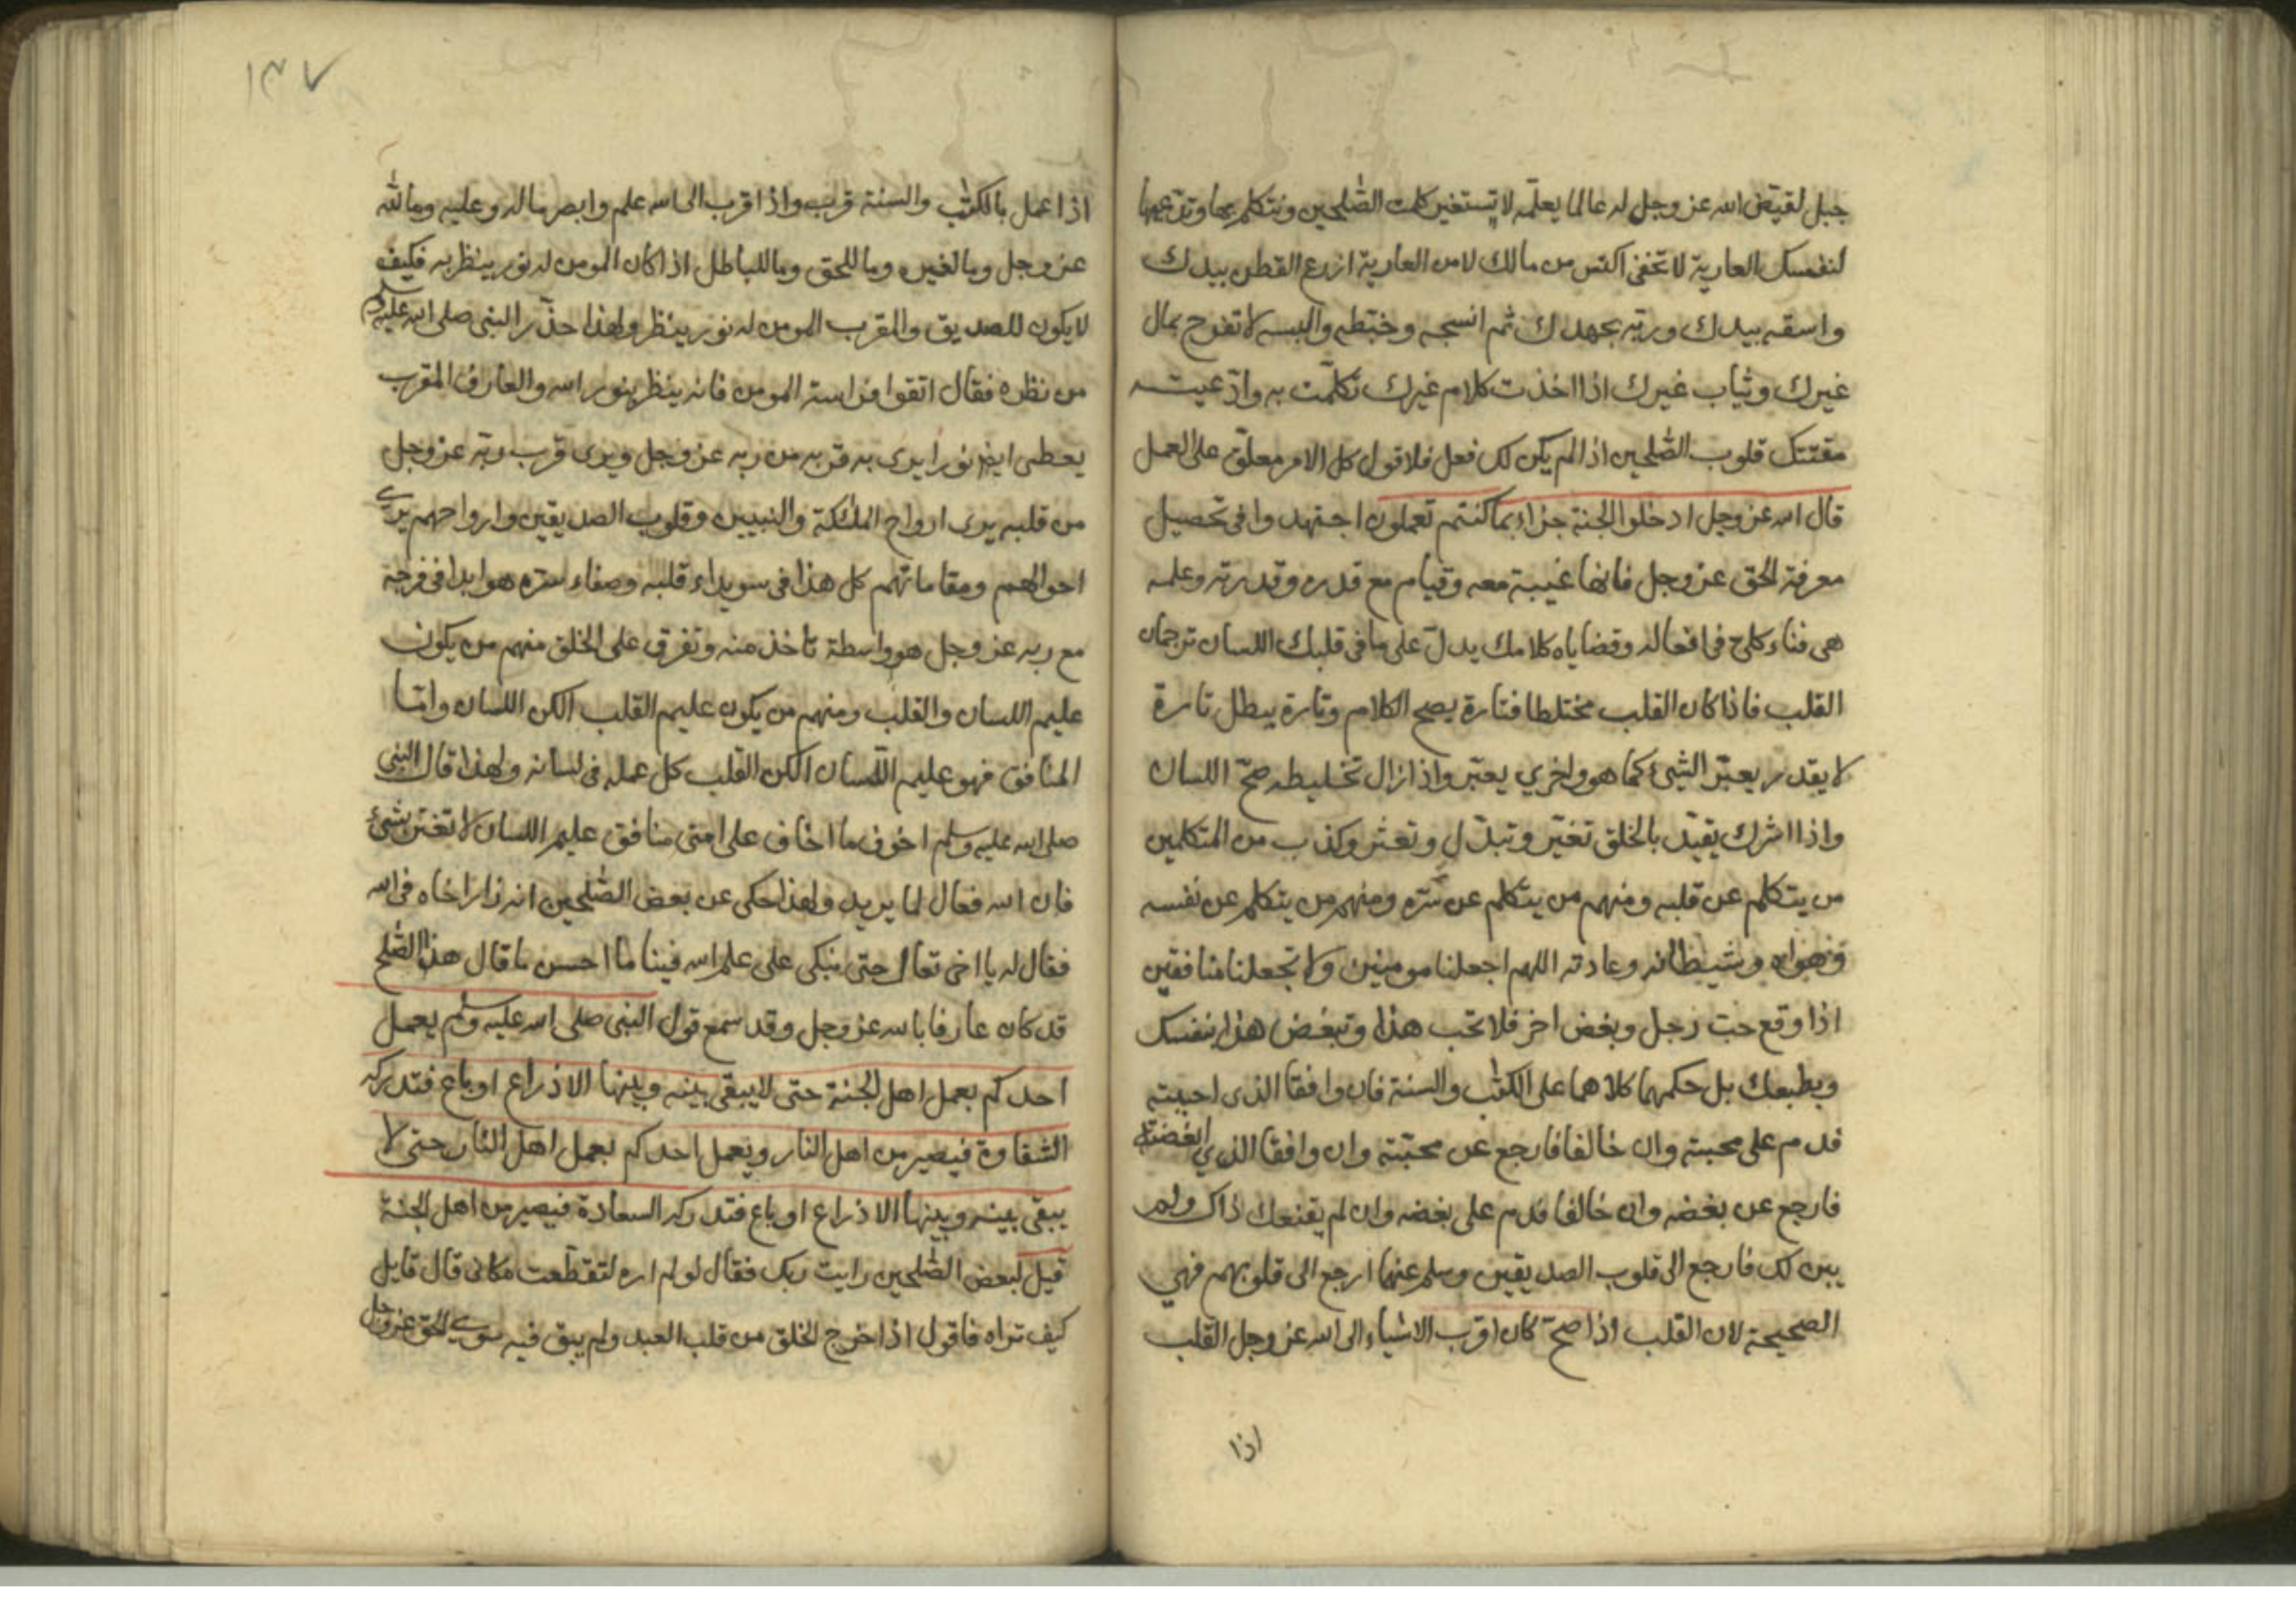 جبل لقيّض الله عز وجل له عالما يعلّمه لا تستغير كلمت الصّٰلحين وتتكلم بها وتدّعيها
لنفسك العارية لا تخفى اكتس من مالك لا من العارية ازرع القطن بيدك
واسقه بيدك وربّه بجهدك ثم انسجه وخيّطه والبسه لا تفرح بمال
غيرك وثياب غيرك اذا اخذت كلام غيرك تكلّمت به وادّعيته
مقتتك قلوب الصّٰلحين اذا لم يكن لك فعل فلا قول كل الامر معلّق على العمل
قال الله عز وجل ادخلوا الجنة جزاء بما كنتم تعملون اجتهدوا في تحصيل
معرفة الحق عز وجل فانها غيبة معه وقيام مع قدره وقدرته وعلمه
هى فناء كلى في افعاله وقضاياه كلامك يدلّ على ما في قلبك اللسان ترجمان
القلب فاذا كان القلب مختلطا فتارة يصح الكلام وتارة يبطل تارة
لا يقدر يعبّر الشئ كما هو واخري يعبّر واذا زال تخليطه صحّ اللسان
واذا اشرك يقيّد بالخلق تغيّر وتبدّل وتعثر وكذب من المتكلمين
من يتكلم عن قلبه ومنهم من يتكلم عن سرّه ومنهم من يتكلم عن نفسه
وهواه وشيطانه وعادته اللهم اجعلنا مومنين ولا تجعلنا منافقين
اذا وقع حبّ رجل وبغض اخر فلا تحب هذا وتبغض هذا بنفسك
وبطبعك بل حكمهما كلاهما على الكتٰب والسنة فان وافقا الذى احببته
فدم على محبته وان خالفا فارجع عن محبّته وان وافقا الذي ابغضته
فارجع عن بغضه وان خالفا فدم على بغضه وان لم يقنعك ذاك ولم
يبن لك فارجع الى قلوب الصديقين وسلم عنهما ارجع الى قلوبهم فهي
الصحيحة لان القلب اذا صحّ كان اقرب الاشياء الى الله عز وجل القلب
اذا
١٣٧
اذا عمل بالكتٰب والسنة قرب واذا اقرب الى الله علم وابصر ماله وعليه وما لله
عز وجل وما لغيره وما للحق وما للباطل اذا كان المومن له نور ينظر به فكيف
لا يكون للصديق والمقرب المومن له نور ينظر ولهذا حذّر النبى صلى الله عليه وسلم
من نظره فقال اتقوا فراسة المومن فانه ينظر بنور الله والعارف المقرب
يعطى ايضا نورا يرى به قربه من ربه عز وجل ويرى قرب ربّه عز وجل
من قلبه يرى ارواح الملٰئكة والنبيين وقلوب الصديقين وارواحهم يرى
احوالهم ومقاماتهم كل هذا في سويداء قلبه وصفاء سرّه هو ابدا في فرحة
مع ربه عز وجل هو واسطة تاخذ منه وتفرق على الخلق منهم من يكون
عليم اللسان والقلب ومنهم من يكون عليم القلب الكن اللسان وامّا
المنافق فهو عليم اللّسان الكن القلب كل عمله فى لسانه ولهذا قال النبى
صلى الله عليه وسلم اخوف ما اخاف على امتى منافق عليم اللسان لا تغتر بشئ
فان الله فعال لما يريد ولهذا حكى عن بعض الصّٰلحين انه زار اخاه في الله
فقال له يا اخى تعال حتى نبكى على علم الله فينا ما احسن ما قال هذا الصّٰلح
قد كان عارفا بالله عز وجل وقد سمع قول النبى صلى الله عليه وسلم يعمل
احدكم بعمل اهل الجنة حتى لا يبقى بينه وبينها الا ذراع او باع فتدركه
الشقاوة فيصير من اهل النار ويعمل احدكم بعمل اهل النار حتى لا
يبقى بينه وبينها الا ذراع او باع فتدركه السعادة فيصير من اهل الجنة
قيل لبعض الصّٰلحين رايت ربك فقال لو لم اره لتقطّعت مكانى قال قايل
كيف تراه فاقول اذا خرج الخلق من قلب العبد ولم يبق فيه سوى الحق عز وجل